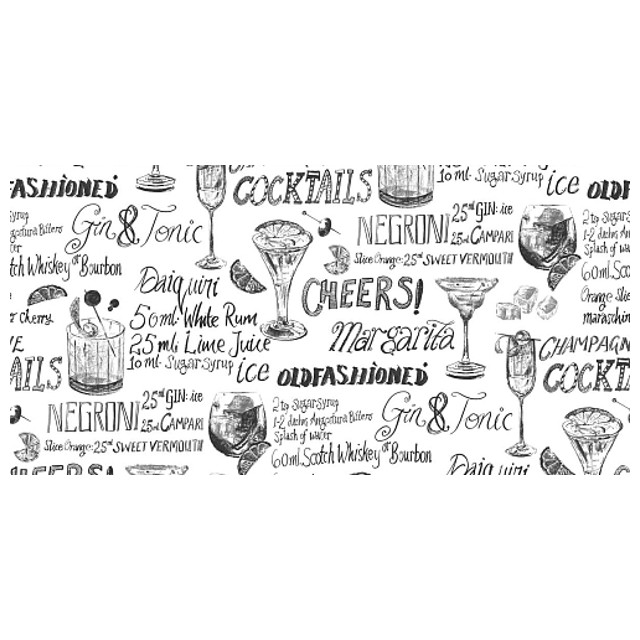 COCKTAILS
10 ml Sugar Syrup ice
OLDF
ASHIONED
Syrup
Angostura Bitters
tch Whiskey or Bourbon
Gin & Tonic
NEGRONI
25ml GIN: ice
25ml CAMPARI
Slice Orange: 25ml SWEET VERMOUTH
2 tsp Sugar S
1-2 dashes Ang
Splash of wa
60ml Sco
Orange Slic
maraschin
r cherry
Daiquiri
50ml White Rum
25ml Lime Juice
10 ml Sugar Syrup ice
CHEERS!
Margarita
CHAMPAGN
COCKTA
AILS
OLDFASHIONED
NEGRONI
25ml GIN: ice
25ml CAMPARI
Slice Orange: 25ml SWEET VERMOUTH
2 tsp Sugar Syrup
1-2 dashes Angostura Bitters
Splash of water
60ml Scotch Whiskey or Bourbon
Gin & Tonic
HEERS!
Daiquiri